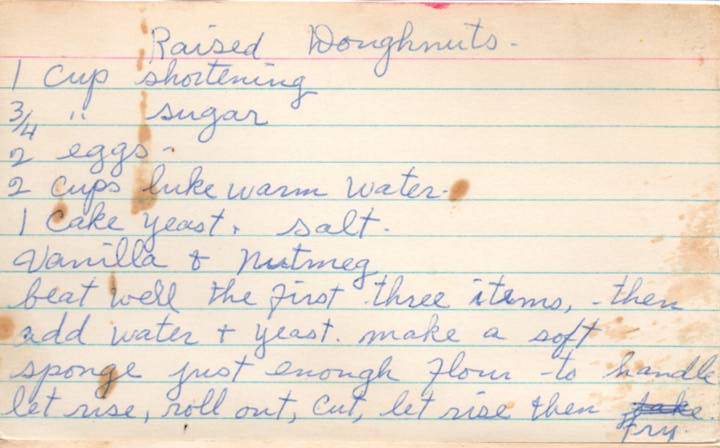 Raised Doughnuts.
1 cup shortening
3/4 " sugar
2 eggs.
2 cups luke warm water.
1 Cake yeast. salt.
Vanilla & Nutmeg
beat well the first three items, then
add water + yeast. make a soft
sponge just enough flour to handle
let rise, roll out, cut, let rise then bake.
fry.